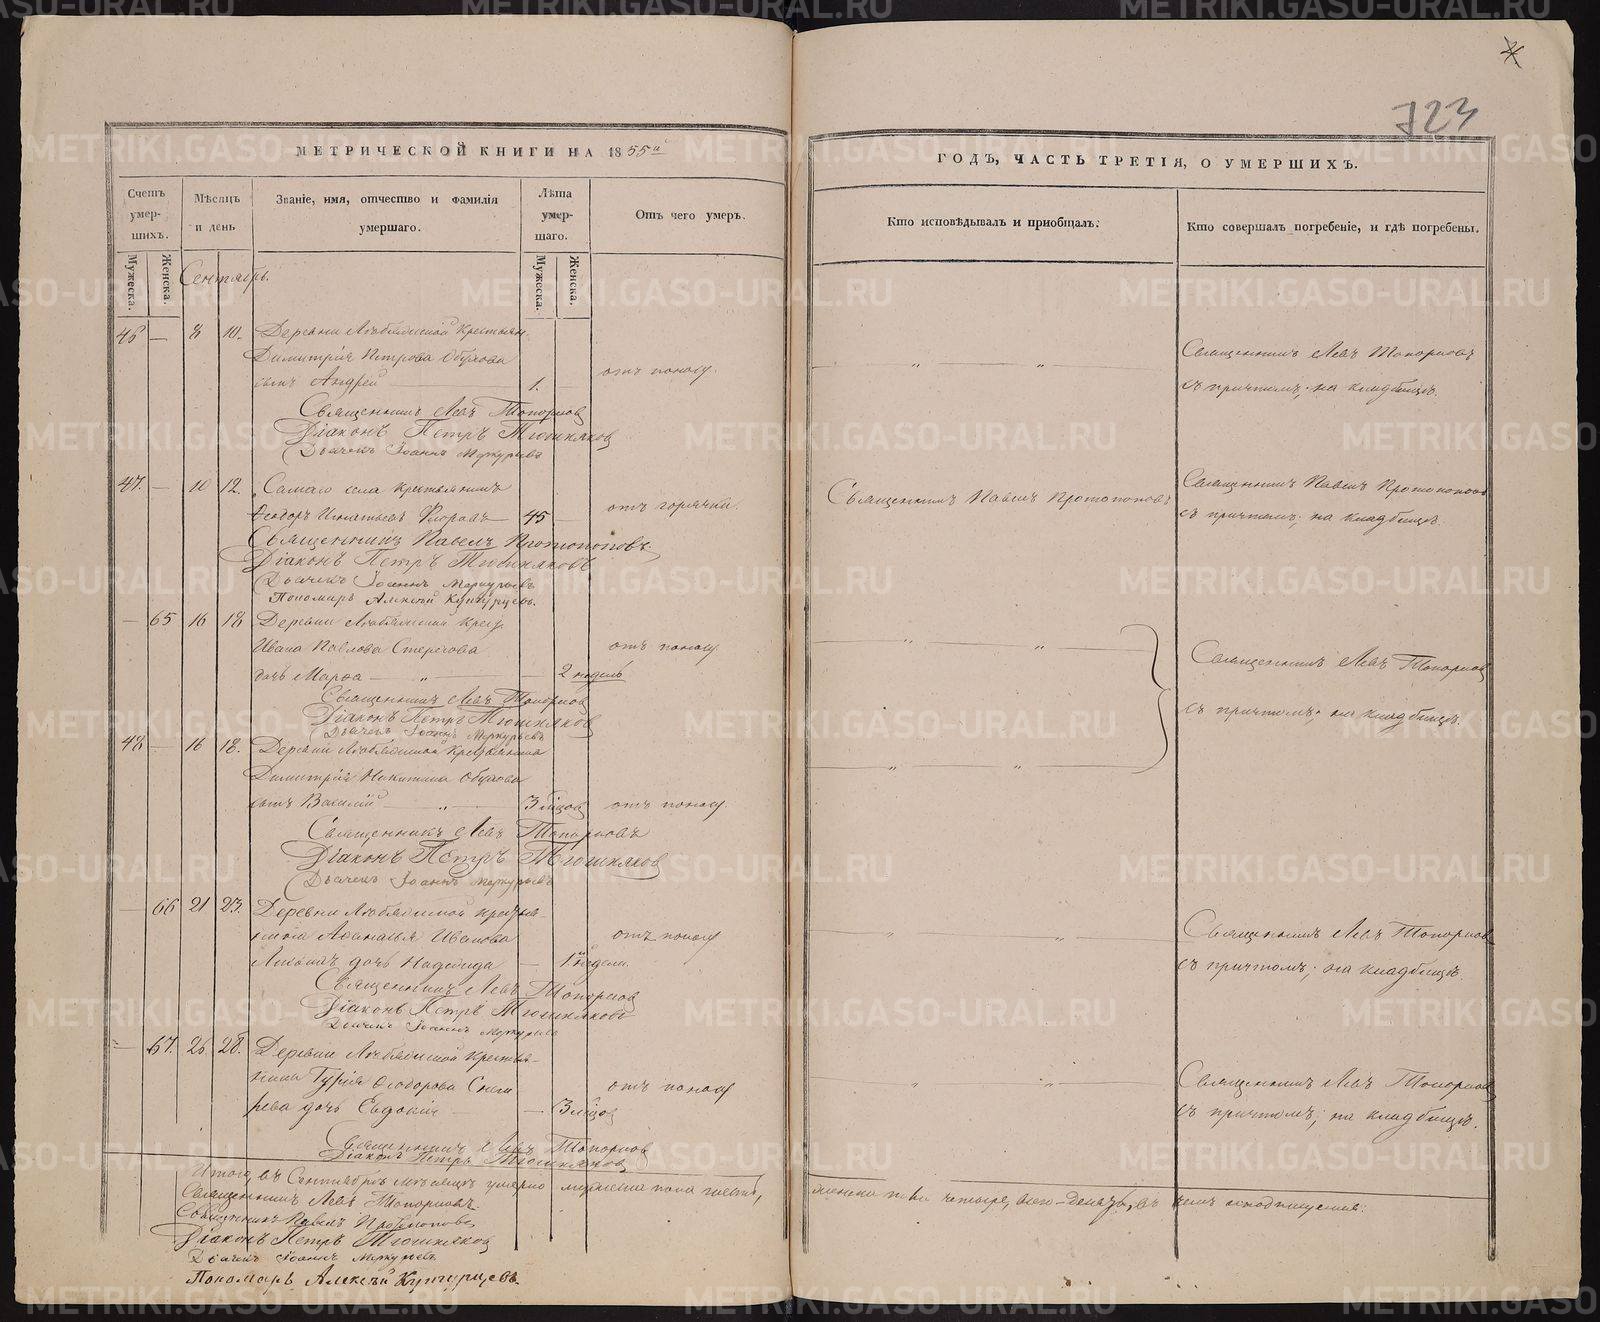 723
МЕТРИЧЕСКОЙ КНИГИ НА 1855й
ГОДЪ, ЧАСТЬ ТРЕТІЯ, О УМЕРШИХЪ.
Счетъ умершихъ.
Мужеска.
Женска.
Мѣсяцъ и день
Званіе, имя, отчество и фамилія умершаго.
Лѣта умершаго.
Мужеска.
Женска.
Отъ чего умеръ.
Кто исповѣдывалъ и пріобщалъ:
Кто совершалъ погребеніе, и гдѣ погребены.
Сентябрь.
46 — 8 10. Деревни крестьян.
Димитрія Петрова Обухова
сынъ Андрей — 1. — отъ поносу.
Священникъ Левъ Топорковъ
съ причтомъ, на кладбищѣ.
Священникъ Левъ Топорковъ
Діаконъ Петръ Тюшняковъ
Дьячекъ Іоаннъ Меркурьевъ
47. — 10 12. Самаго села крестьянинъ
Ѳеодоръ Игнатьевъ — 45 — отъ горячки.
Священникъ Павелъ Протопоповъ
Священникъ Павелъ Протопоповъ
съ причтомъ; на кладбищѣ.
Священникъ Павелъ Протопоповъ.
Діаконъ Петръ Тюшняковъ
Дьячекъ Іоаннъ Меркурьевъ
Пономарь Алексѣй Кунгурцевъ.
— 65 16 18 Деревни крест.
Ивана Павлова
дочь Марѳа — 2 недѣль отъ поносу
Священникъ Левъ Топорковъ
съ причтомъ; на кладбищѣ.
Священникъ Левъ Топорковъ
Діаконъ Петръ Тюшняковъ
Дьячекъ Іоаннъ Меркурьевъ
48 — 16 18. Деревни крестьянина
Димитрія Никитина Обухова
сынъ Василій — 3 мѣсцов отъ поносу.
Священникъ Левъ Топорковъ
Діаконъ Петръ Тюшняковъ
Дьячекъ Іоаннъ Меркурьевъ
— 66 21 23. Деревни крестья-
нина Аѳанасья Иванова
дочь Надежда — 1 недѣли. отъ поносу
Священникъ Левъ Топорковъ
съ причтомъ; на кладбищѣ.
Священникъ Левъ Топорковъ
Діаконъ Петръ Тюшняковъ
Дьячекъ Іоаннъ Меркурьевъ
— 67. 26 28. Деревни крестья-
нина Гурія Ѳеодорова Снеги
рева дочь Евдокія — 3 мѣсцов отъ поносу
Священникъ Левъ Топорковъ
съ причтомъ; на кладбищѣ.
Священникъ Левъ Топорковъ
Діаконъ Петръ Тюшняковъ
Итого въ Сентябрѣ мѣсяцѣ умерло мужеска пола шесть,
женска четыре, всего десять, въ чемъ и подписуемся:
Священникъ Левъ Топорковъ.
Священникъ Павелъ Протопоповъ
Діаконъ Петръ Тюшняковъ
Дьячекъ Іоаннъ Меркурьевъ
Пономарь Алексѣй Кунгурцевъ.
METRIKI.GASO-URAL.RU